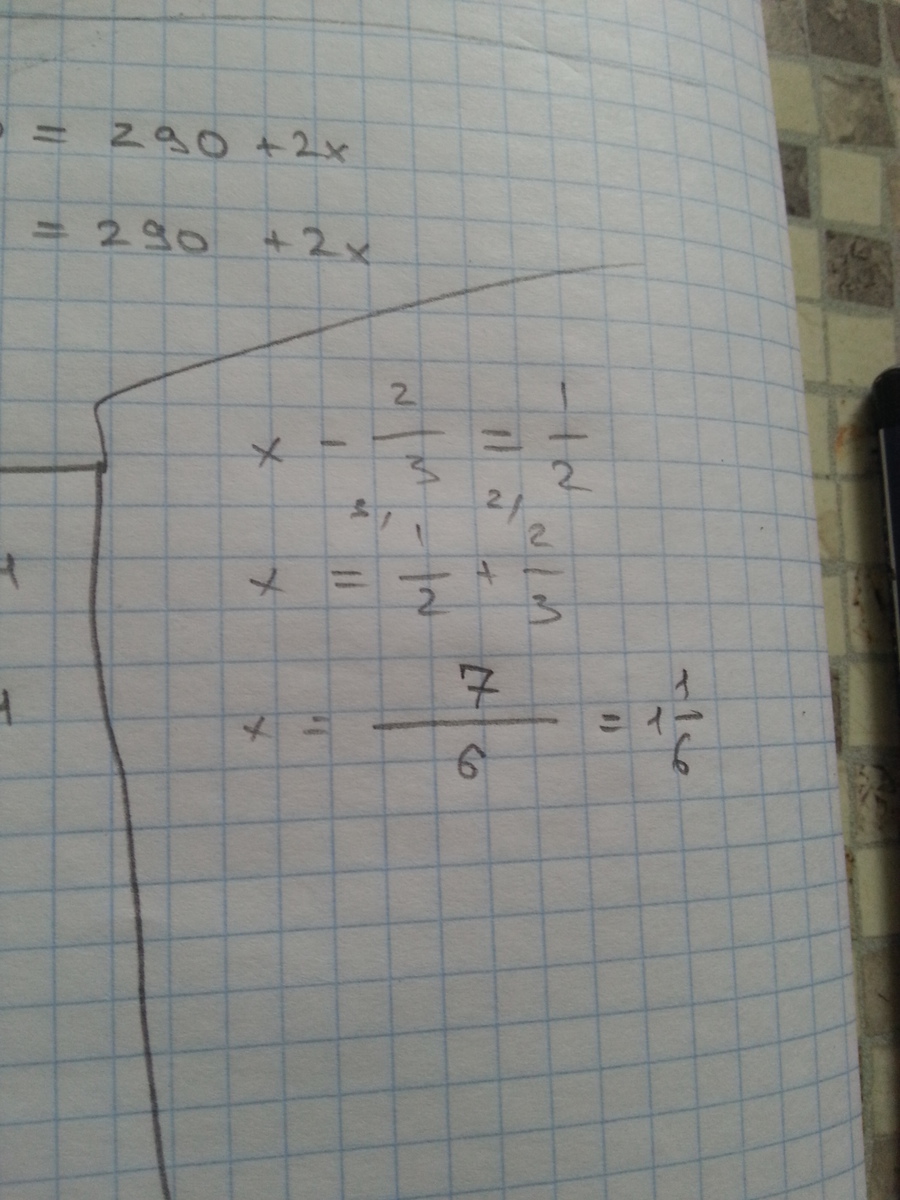 = 290 + 2x
= 290 + 2x
x - 2/3 = 1/2
3, 2,
x = 1/2 + 2/3
x = 7/6 = 1 1/6